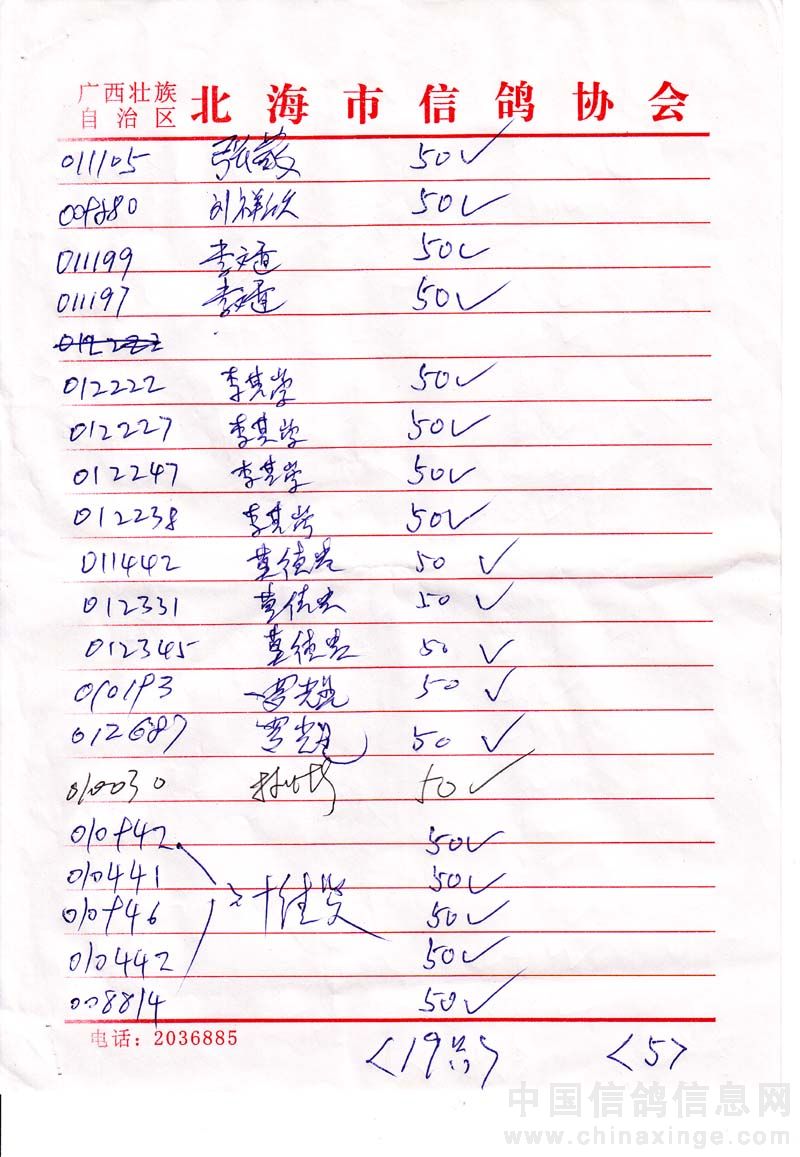 广西壮族
自治区 北海市信鸽协会
011105 张敏 50✓
50✓
011199 李文通 50✓
011197 李文通 50✓
012222
012222 李其学 50✓
012227 李其学 50✓
012247 李其学 50✓
012238 李其学 50✓
011442 莫德贵 50 ✓
012331 莫德贵 50 ✓
012345 莫德贵 50 ✓
010193 50 ✓
012687 50 ✓
010030 50✓
50✓
010441 50✓
50✓
010442 50✓
008814 50✓
电话：2036885
<19羽> <5>
中国信鸽信息网
www.chinaxinge.com